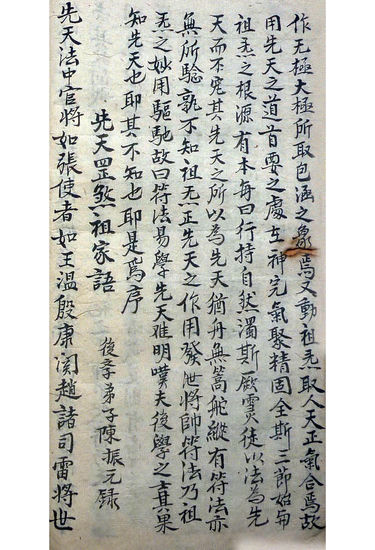 作无極大極所取包涵之象焉又動祖炁取人天正氣合焉故
用先天之道首要之處在神完氣聚精固全斯三節始毎
祖炁之根源有本毎曰行持自然濁斯厥灵徒以法為先
天而不究其先天之所以為先天猶舟無篙舵縱有符法亦
無所騐孰不知祖炁正先天之作用發泄將帥符法乃祖
炁之妙用驅馳故曰符法易學先天难明嘆夫後學之真果
知先天也耶其不知也耶是為序
先天罡煞祖家語
後孝弟子陳振元録
先天法中官將如張使者如王温殷康関趙諸司雷將世